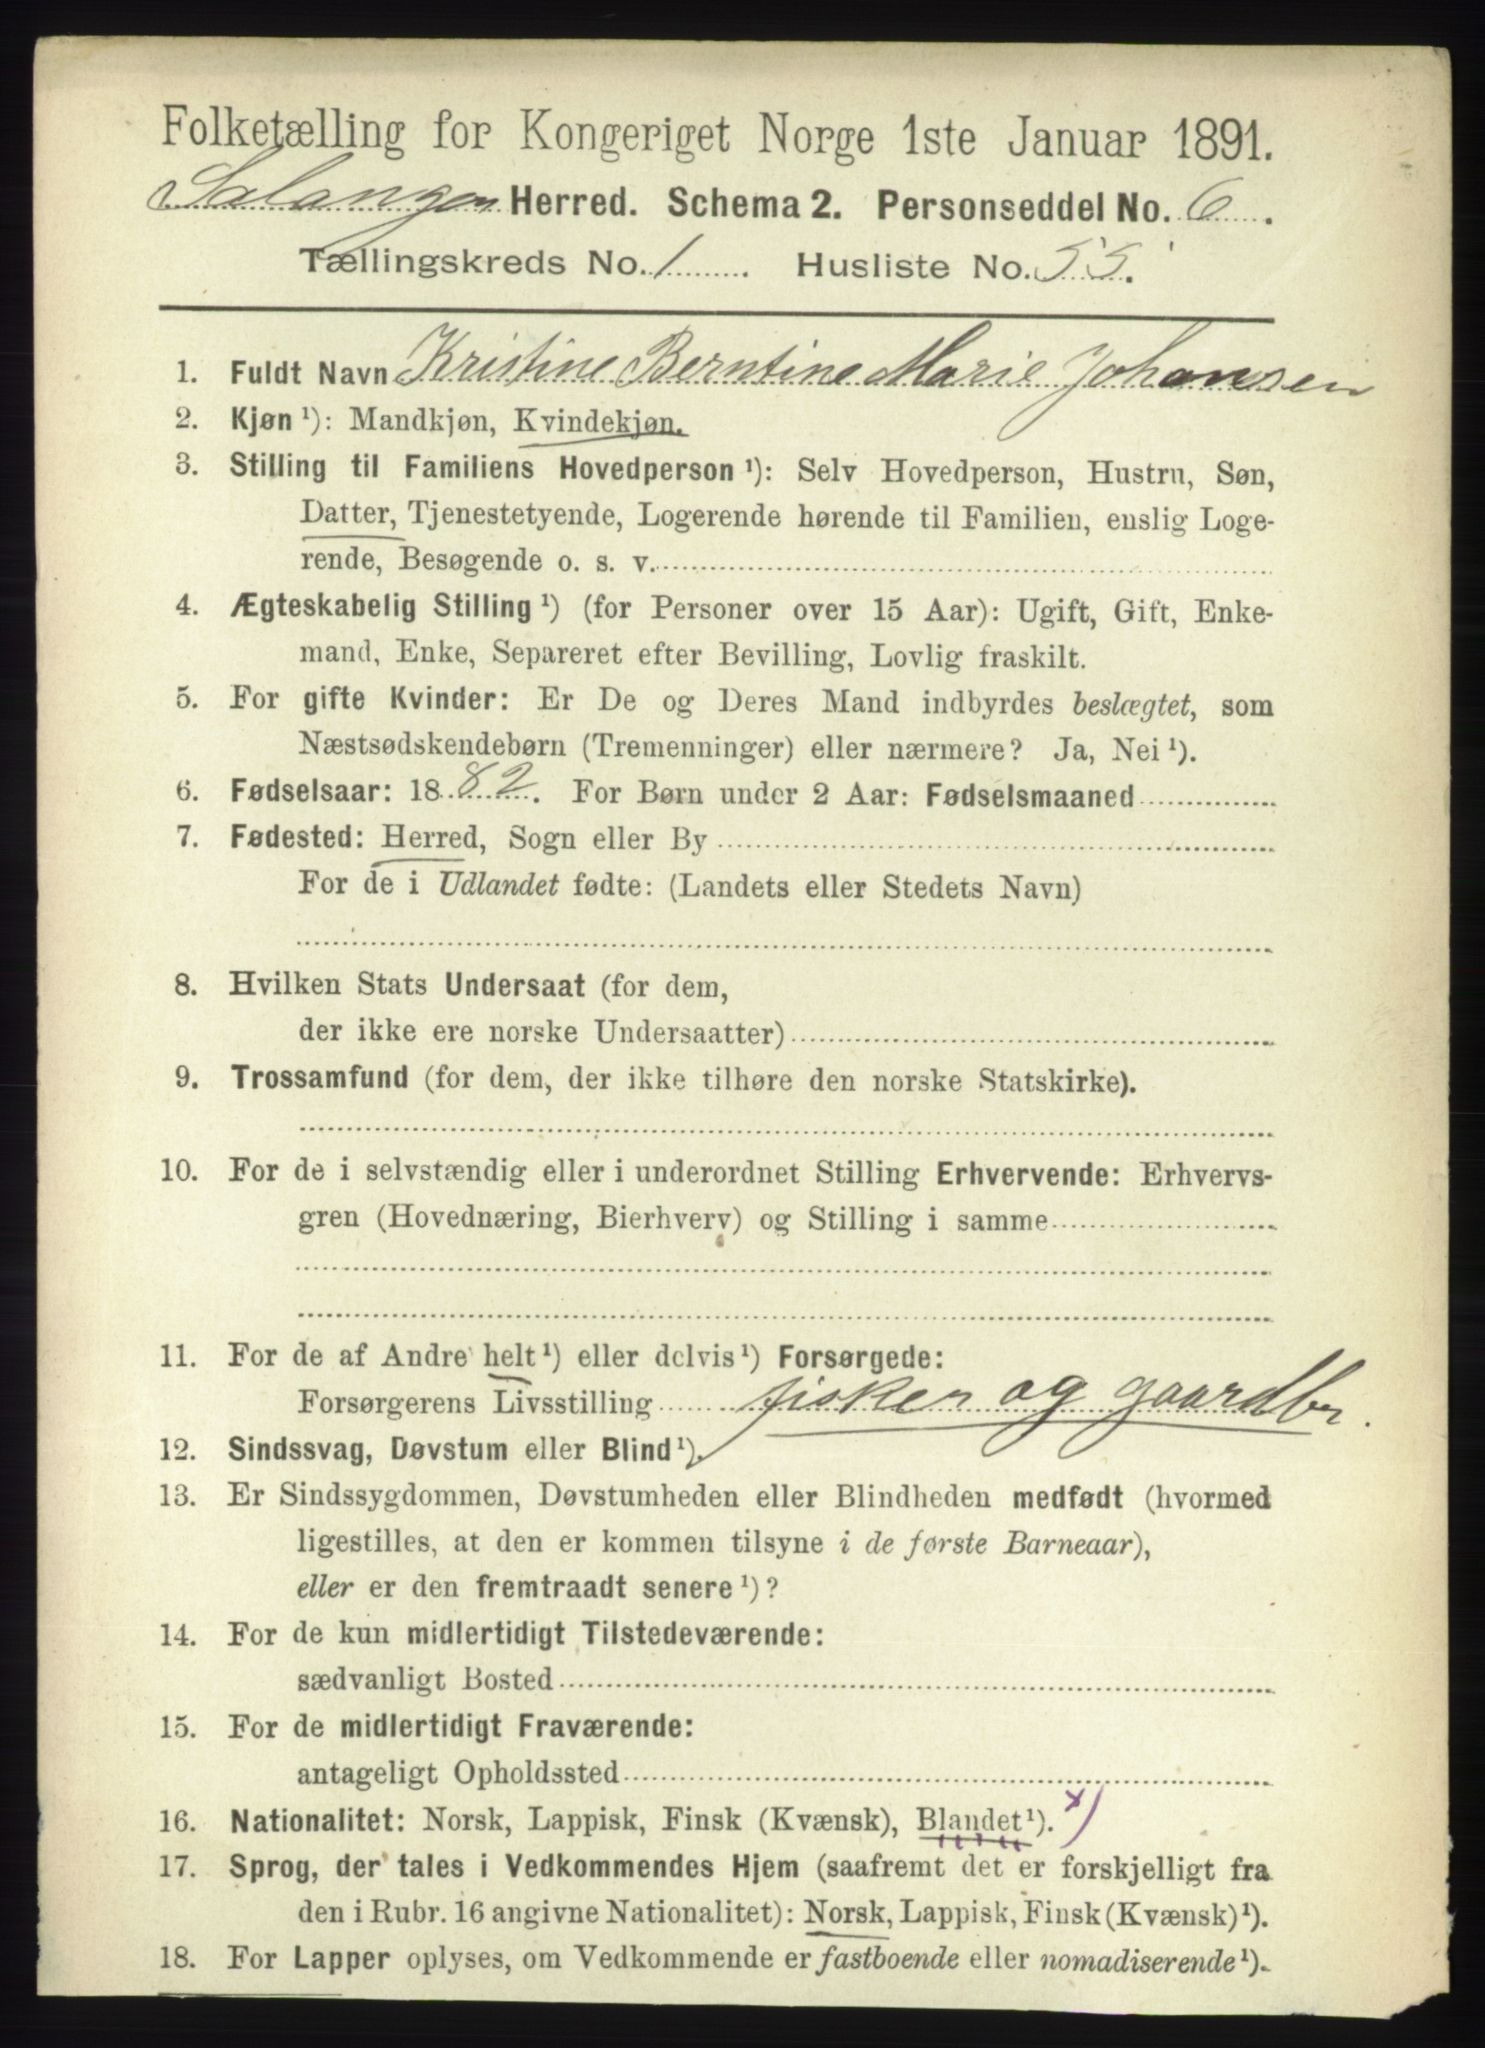 Folketælling for Kongeriget Norge 1ste Januar 1891.
Salangen Herred. Schema 2. Personseddel No. 6.
Tællingskreds No. 1. Husliste No. 55.
1. Fuldt Navn Kristine Berntine Marie Johansen
2. Kjøn ¹): Mandkjøn, Kvindekjøn.
3. Stilling til Familiens Hovedperson ¹): Selv Hovedperson, Hustru, Søn,
Datter, Tjenestetyende, Logerende hørende til Familien, enslig Loge-
rende, Besøgende o. s. v.
4. Ægteskabelig Stilling ¹) (for Personer over 15 Aar): Ugift, Gift, Enke-
mand, Enke, Separeret efter Bevilling, Lovlig fraskilt.
5. For gifte Kvinder: Er De og Deres Mand indbyrdes beslægtet, som
Næstsødskendebørn (Tremenninger) eller nærmere? Ja, Nei ¹).
6. Fødselsaar: 1882. For Børn under 2 Aar: Fødselsmaaned
7. Fødested: Herred, Sogn eller By
For de i Udlandet fødte: (Landets eller Stedets Navn)
8. Hvilken Stats Undersaat (for dem,
der ikke ere norske Undersaatter)
9. Trossamfund (for dem, der ikke tilhøre den norske Statskirke).
10. For de i selvstændig eller i underordnet Stilling Erhvervende: Erhvervs-
gren (Hovednæring, Bierhverv) og Stilling i samme
11. For de af Andre helt ¹) eller delvis ¹) Forsørgede:
Forsørgerens Livsstilling fisker og gaardbr.
12. Sindssvag, Døvstum eller Blind ¹).
13. Er Sindssygdommen, Døvstumheden eller Blindheden medfødt (hvormed
ligestilles, at den er kommen tilsyne i de første Barneaar),
eller er den fremtraadt senere ¹)?
14. For de kun midlertidigt Tilstedeværende:
sædvanligt Bosted
15. For de midlertidigt Fraværende:
antageligt Opholdssted
16. Nationalitet: Norsk, Lappisk, Finsk (Kvænsk), Blandet ¹). x)
17. Sprog, der tales i Vedkommendes Hjem (saafremt det er forskjelligt fra
den i Rubr. 16 angivne Nationalitet): Norsk, Lappisk, Finsk (Kvænsk) ¹).
18. For Lapper oplyses, om Vedkommende er fastboende eller nomadiserende ¹).